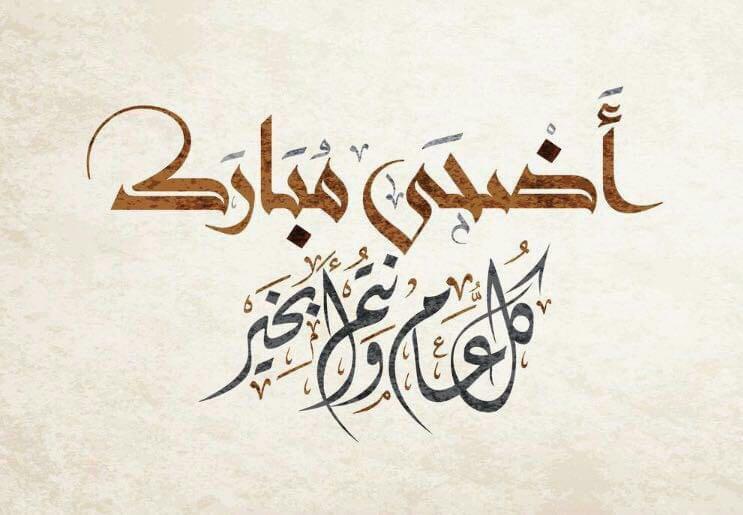 أَضْحَى مُبَارَك
كُلُّ عَام وَأَنتُم بِخَيْر